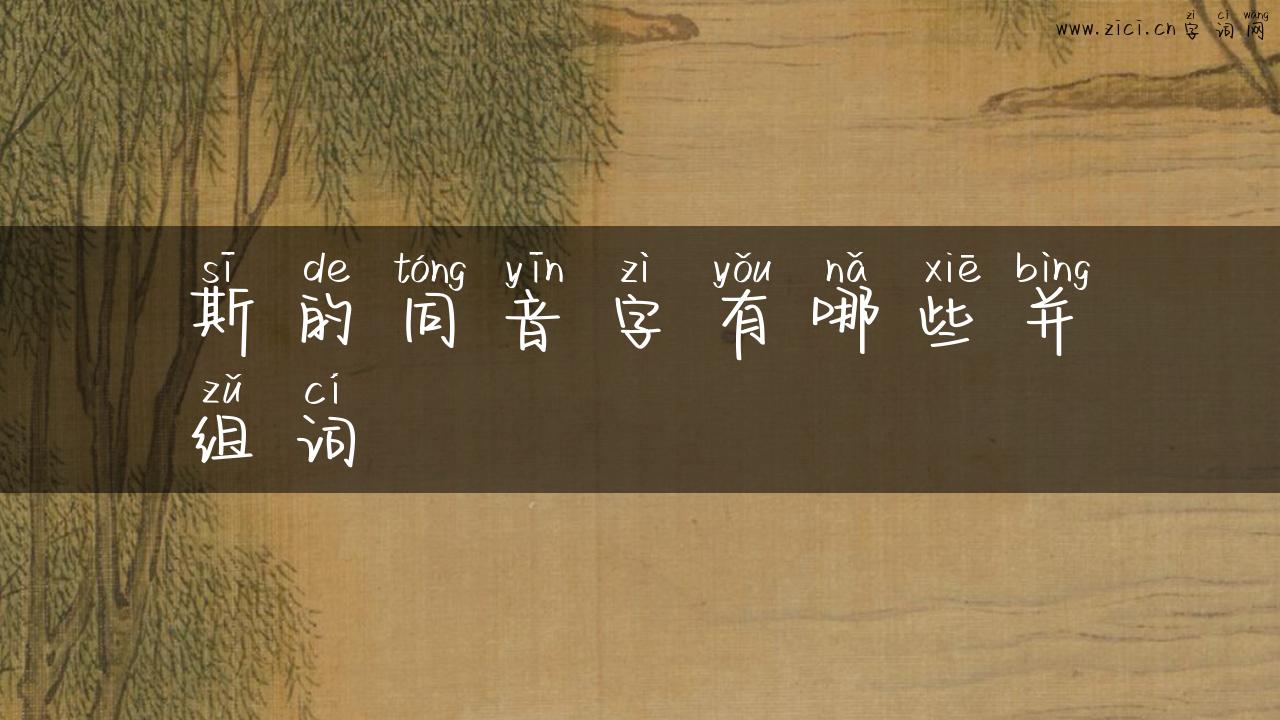 zì cí wǎng
www.zici.cn字词网
sī de tóng yīn zì yǒu nǎ xiē bìng
斯的同音字有哪些并
zǔ cí
组词